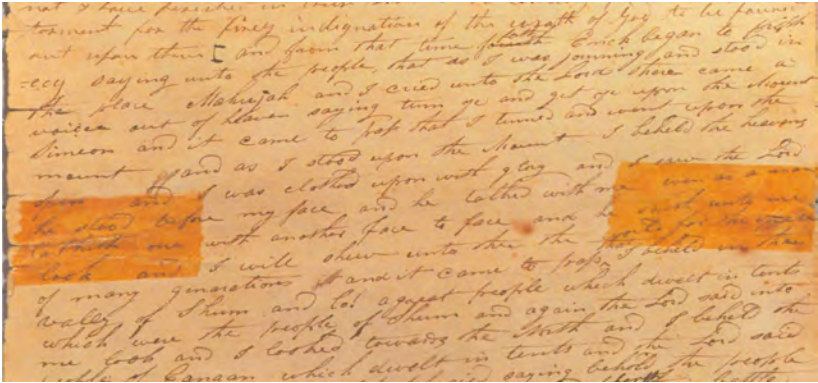 not & have perished in
torment for the firey indignation of the wrath of God to be
out upon them [ and from that time forth Enock began to proph
=ecy saying unto the people, that as I was journing and stood in
the place Mahujah and I cried unto the Lord there came a
voice out of heaven saying turn ye and get ye upon the Mount
Simeon and it came to pass that I turned and went upon the
mount and as I stood upon the Mount I beheld the heavens
open and I was clothed upon with glory and I saw the Lord
he stood before my face and he talked with me even as a man
talketh one with another face to face and he saith unto me
look and I will shew unto thee the for the space
of many generations and it came to pass that I beheld in the
valley of Shum and lo! a great people which dwelt in tents
which were the people of Shum and again the Lord said unto
me look and I looked towards the North and I beheld the
people of Canaan which dwelt in tents and the Lord said
saying behold the people